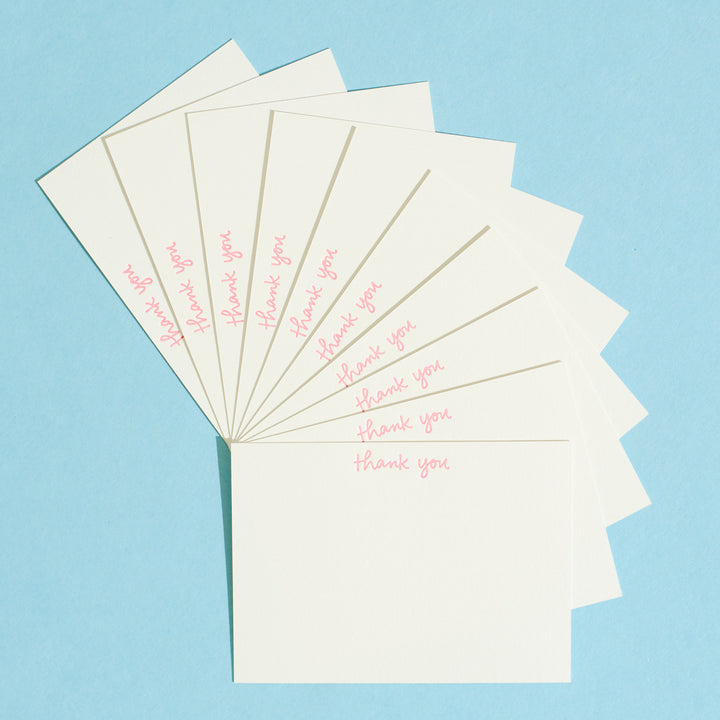 thank you
thank you
thank you
thank you
thank you
thank you
thank you
thank you
thank you
thank you